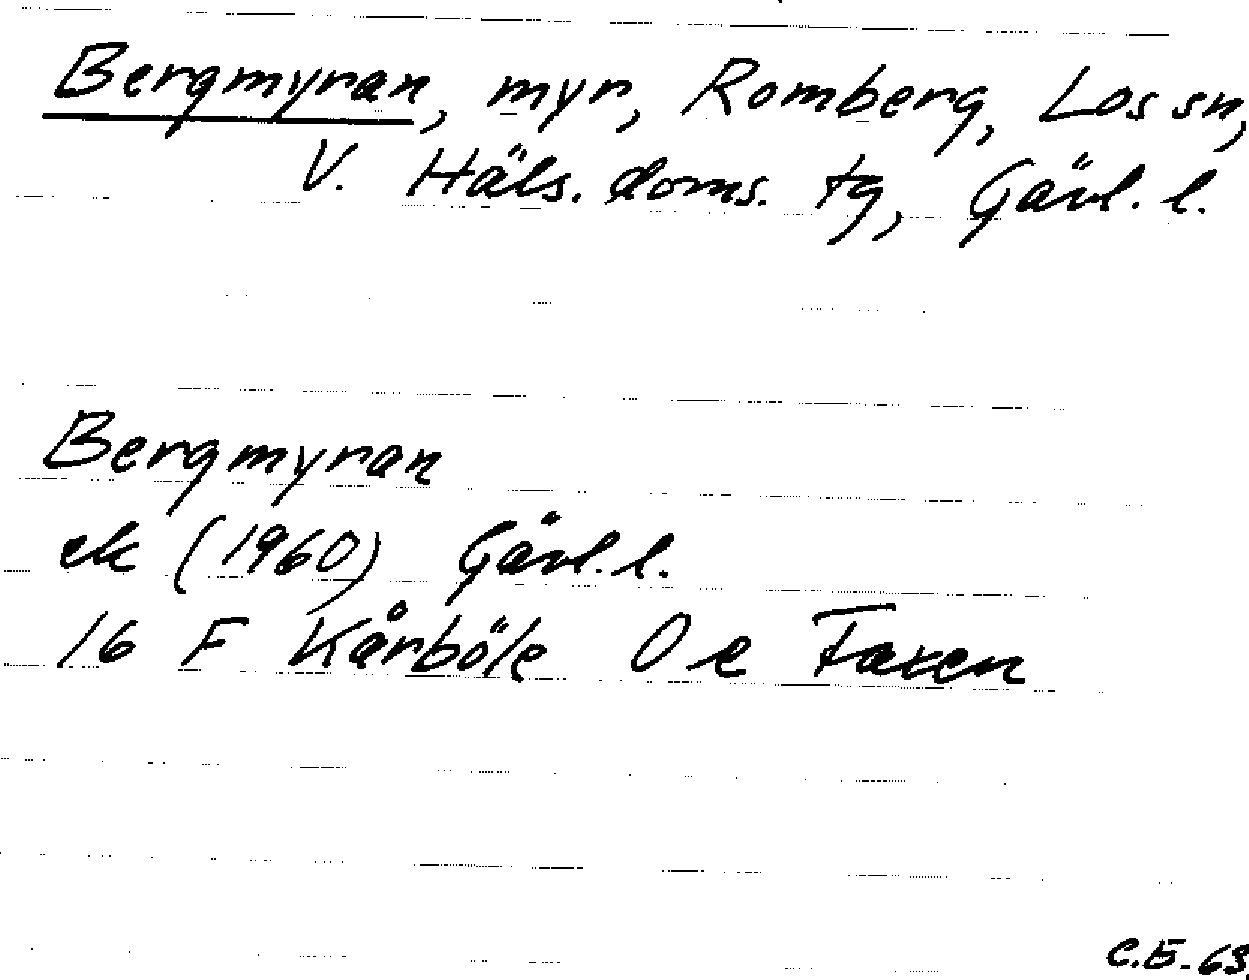 Bergmyran, myr, Romberg, Los sn,
V. Häls. doms. tg, Gävl. l.
Bergmyran
ek (1960) Gävl. l.
16 F Kårböle O e Faxen
C.E. 63.